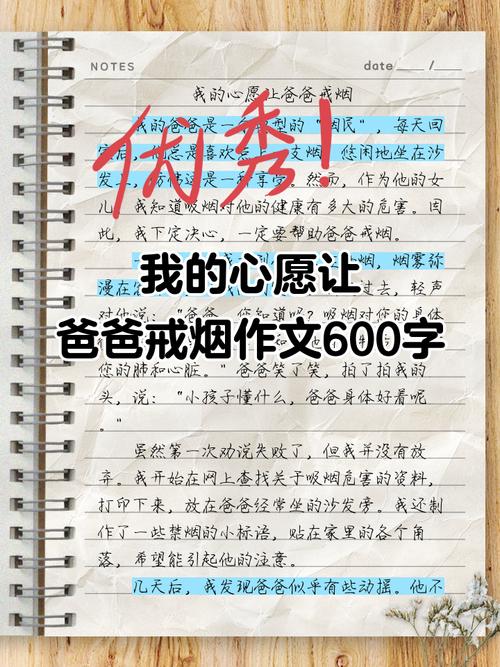 NOTES
date ____ / ____
我的心愿让爸爸戒烟
优秀!
我的爸爸是一个典型的"烟民",每天回
家后,他总是喜欢点上一支烟,悠闲地坐在沙
发上,仿佛这是一种享受。然而,作为他的女
儿,我知道吸烟对他的健康有多大的危害。因
此,我下定决心,一定要帮助爸爸戒烟。
烟,烟雾弥
漫在
过去,轻声
我的心愿让
爸爸戒烟作文600字
您的肺和心脏。"爸爸笑了笑,拍了拍我的
头,说:"小孩子懂什么,爸爸身体好着呢
。"
虽然第一次劝说失败了,但我并没有放
弃。我开始在网上查找关于吸烟危害的资料,
打印下来,放在爸爸经常坐的沙发旁。我还制
作了一些禁烟的小标语,贴在家里的各个角
落,希望能引起他的注意。
几天后,我发现爸爸似乎有些动摇。他不